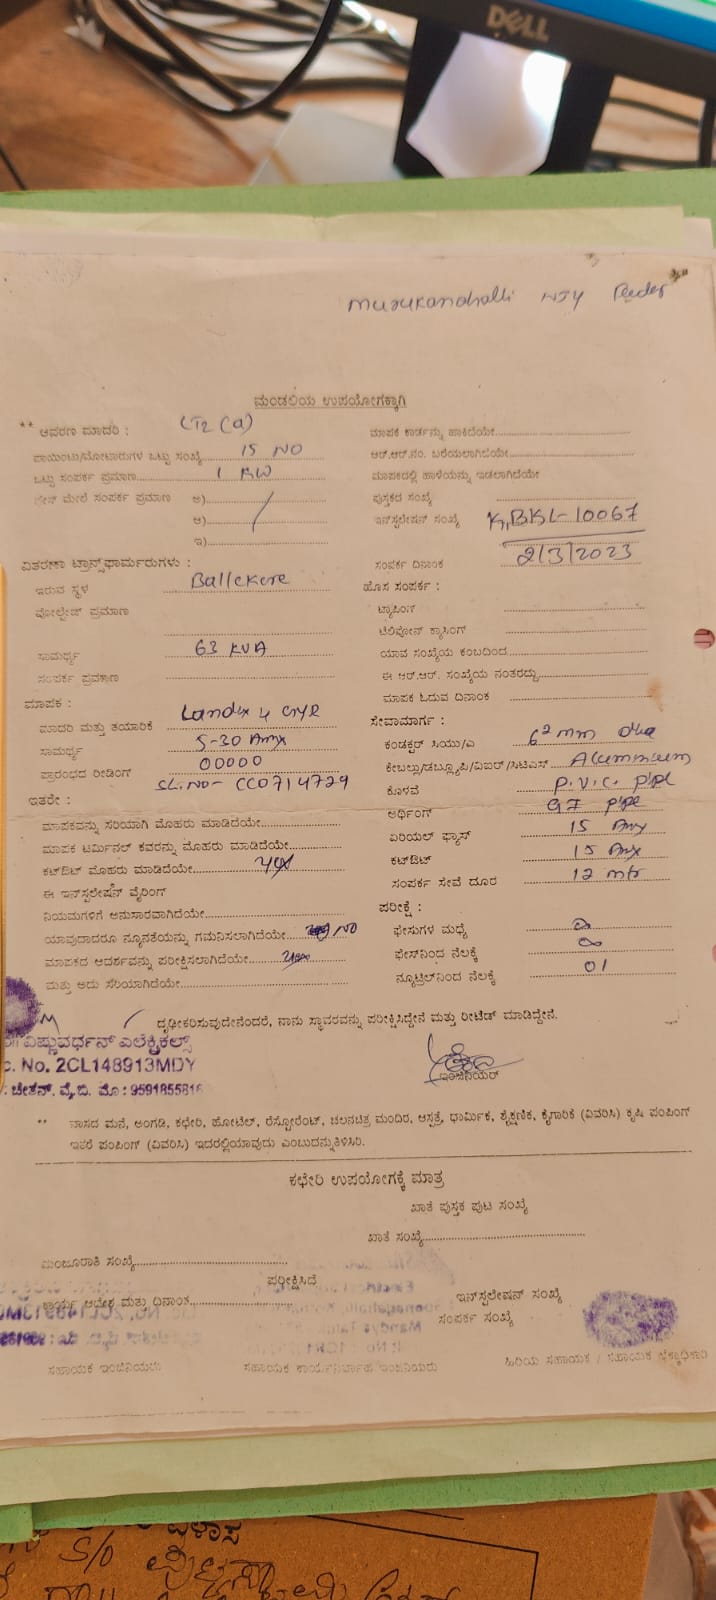 DELL
Murukanahalli NJY Feeder
ಮಂಡಲಿಯ ಉಪಯೋಗಕ್ಕಾಗಿ
** ಆವರಣ ಮಾದರಿ : LT2 (a)
ಪಾಯಿಂಟು/ಮೋಟಾರುಗಳ ಒಟ್ಟು ಸಂಖ್ಯೆ 15 NO
ಒಟ್ಟು ಸಂಪರ್ಕ ಪ್ರಮಾಣ 1 KW
ಮೇಲೆ ಸಂಪರ್ಕ ಪ್ರಮಾಣ ಅ)
ಆ)
ಇ)
ವಿತರಣಾ ಟ್ರಾನ್ಸ್‌ಫಾರ್ಮರುಗಳು :
ಇರುವ ಸ್ಥಳ Ballekere
ವೋಲ್ಟೇಜ್ ಪ್ರಮಾಣ
ಸಾಮರ್ಥ್ಯ 63 KVA
ಸಂಪರ್ಕ ಪ್ರವಹಣ
ಮಾಪಕ :
ಮಾದರಿ ಮತ್ತು ತಯಾರಿಕೆ
ಸಾಮರ್ಥ್ಯ 5-30 Amp
ಪ್ರಾರಂಭದ ರೀಡಿಂಗ್ 00000
SL.NO- CC0714729
ಇತರೇ :
ಮಾಪಕವನ್ನು ಸರಿಯಾಗಿ ಮೊಹರು ಮಾಡಿದೆಯೇ
ಮಾಪಕ ಟರ್ಮಿನಲ್ ಕವರನ್ನು ಮೊಹರು ಮಾಡಿದೆಯೇ
ಕಟ್‌ಔಟ್ ಮೊಹರು ಮಾಡಿದೆಯೇ yes
ಈ ಇನ್‌ಸ್ಟಲೇಷನ್ ವೈರಿಂಗ್
ನಿಯಮಗಳಿಗೆ ಅನುಸಾರವಾಗಿದೆಯೇ
ಯಾವುದಾದರೂ ನ್ಯೂನತೆಯನ್ನು ಗಮನಿಸಲಾಗಿದೆಯೇ NO
ಮಾಪಕದ ಆದರ್ಶವನ್ನು ಪರೀಕ್ಷಿಸಲಾಗಿದೆಯೇ yes
ಮತ್ತು ಅದು ಸರಿಯಾಗಿದೆಯೇ
ಮಾಪಕ ಕಾರ್ಡನ್ನು ಹಾಕಿದೆಯೇ
ಆರ್.ಆರ್.ನಂ. ಬರೆಯಲಾಗಿದೆಯೇ
ಮಾಪಕದಲ್ಲಿ ಹಾಳೆಯನ್ನು ಇಡಲಾಗಿದೆಯೇ
ಪುಸ್ತಕದ ಸಂಖ್ಯೆ
ಇನ್‌ಸ್ಟಲೇಷನ್ ಸಂಖ್ಯೆ K,BKL-10067
ಸಂಪರ್ಕ ದಿನಾಂಕ 2/3/2023
ಹೊಸ ಸಂಪರ್ಕ :
ಟ್ಯಾಪಿಂಗ್
ಟೆಲಿಫೋನ್ ಕ್ರಾಸಿಂಗ್
ಯಾವ ಸಂಖ್ಯೆಯ ಕಂಬದಿಂದ
ಈ ಆರ್.ಆರ್. ಸಂಖ್ಯೆಯ ನಂತರದ್ದು
ಮಾಪಕ ಓದುವ ದಿನಾಂಕ
ಸೇವಾಮಾರ್ಗ :
ಕಂಡಕ್ಟರ್ ಸಿಯು/ಎ 6² mm
ಕೇಬಲ್ಲು/ಡಬ್ಲ್ಯೂಪಿ/ವಿಐಆರ್/ಸಿಟಿಎಸ್ Alummium
ಕೊಳವೆ P.V.C. pipe
ಅರ್ಥಿಂಗ್ GI pipe
ಏರಿಯಲ್ ಫ್ಯೂಸ್ 15 Amp
ಕಟ್‌ಔಟ್ 15 Amp
ಸಂಪರ್ಕ ಸೇವೆ ದೂರ 12 mtr
ಪರೀಕ್ಷೆ :
ಫೇಸುಗಳ ಮಧ್ಯೆ ∞
ಫೇಸ್‌ನಿಂದ ನೆಲಕ್ಕೆ ∞
ನ್ಯೂಟ್ರಲ್‌ನಿಂದ ನೆಲಕ್ಕೆ 01
ದೃಢೀಕರಿಸುವುದೇನೆಂದರೆ, ನಾನು ಸ್ಥಾವರವನ್ನು ಪರೀಕ್ಷಿಸಿದ್ದೇನೆ ಮತ್ತು ರೀಟೆಡ್ ಮಾಡಿದ್ದೇನೆ.
ವಿಷ್ಣುವರ್ಧನ್ ಎಲೆಕ್ಟ್ರಿಕಲ್ಸ್
No. 2CL148913MDY
ಚೇತನ್. ವೈ.ಬಿ. ಮೊ : 9591855816
ಇಂಜಿನಿಯರ್
** ವಾಸದ ಮನೆ, ಅಂಗಡಿ, ಕಛೇರಿ, ಹೋಟೆಲ್, ರೆಸ್ಟೋರೆಂಟ್, ಚಲನಚಿತ್ರ ಮಂದಿರ, ಆಸ್ಪತ್ರೆ, ಧಾರ್ಮಿಕ, ಶೈಕ್ಷಣಿಕ, ಕೈಗಾರಿಕೆ (ವಿವರಿಸಿ) ಕೃಷಿ ಪಂಪಿಂಗ್
ಇತರೆ ಪಂಪಿಂಗ್ (ವಿವರಿಸಿ) ಇದರಲ್ಲಿಯಾವುದು ಎಂಬುದನ್ನುತಿಳಿಸಿರಿ.
ಕಛೇರಿ ಉಪಯೋಗಕ್ಕೆ ಮಾತ್ರ
ಖಾತೆ ಪುಸ್ತಕ ಪುಟ ಸಂಖ್ಯೆ
ಖಾತೆ ಸಂಖ್ಯೆ
ಮಂಜೂರಾತಿ ಸಂಖ್ಯೆ
ಪರೀಕ್ಷಿಸಿದೆ
ಕಾರ್ಯ ಆದೇಶ ಮತ್ತು ದಿನಾಂಕ
ಇನ್‌ಸ್ಟಲೇಷನ್ ಸಂಖ್ಯೆ
ಸಂಪರ್ಕ ಸಂಖ್ಯೆ
ಸಹಾಯಕ ಇಂಜಿನಿಯರು ಸಹಾಯಕ ಕಾರ್ಯನಿರ್ವಾಹಕ ಇಂಜಿನಿಯರು ಹಿರಿಯ ಸಹಾಯಕ / ಸಹಾಯಕ ಲೆಕ್ಕಾಧಿಕಾರಿ
S/O